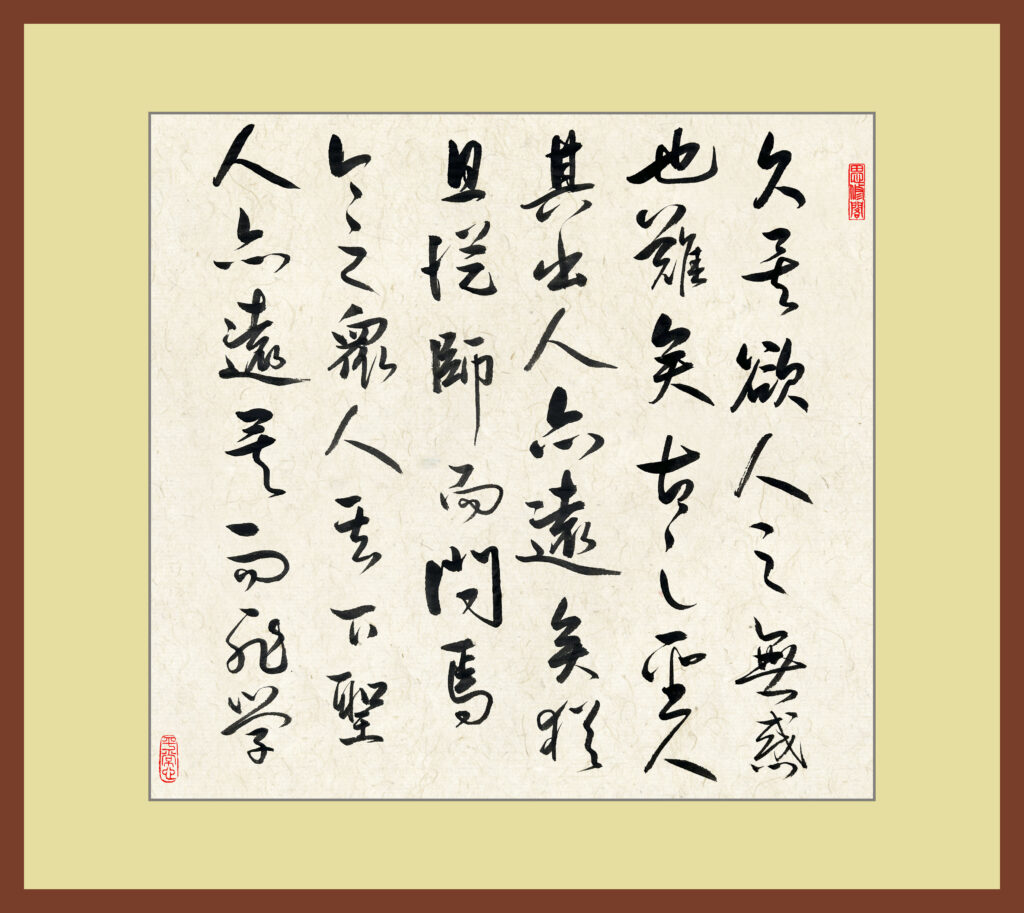 思修閣
久矣欲人之無惑
也難矣古之聖人
其出人亦遠矣猶
且從師而問焉
今之眾人其下聖
人亦遠矣而恥学
平常心